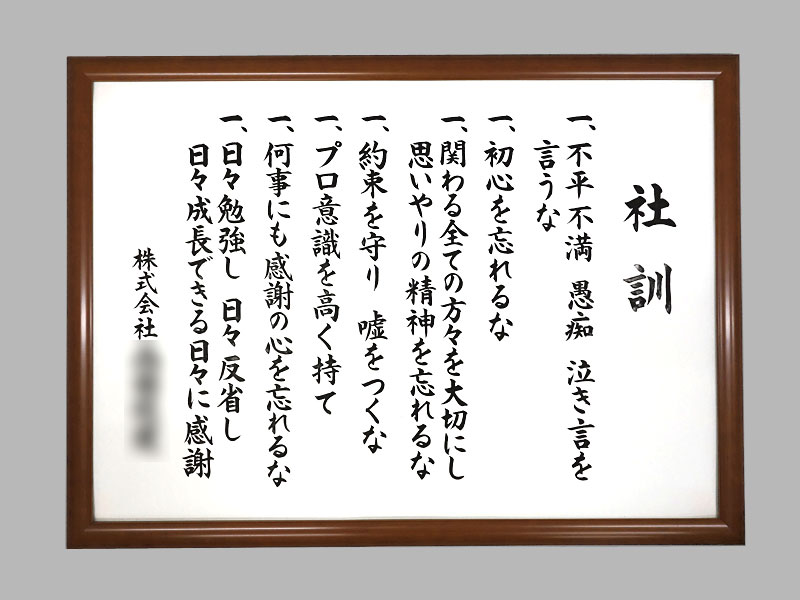 社訓
一、不平不満 愚痴 泣き言を
言うな
一、初心を忘れるな
一、関わる全ての方々を大切にし
思いやりの精神を忘れるな
一、約束を守り 嘘をつくな
一、プロ意識を高く持て
一、何事にも感謝の心を忘れるな
一、日々勉強し 日々反省し
日々成長できる日々に感謝
株式会社